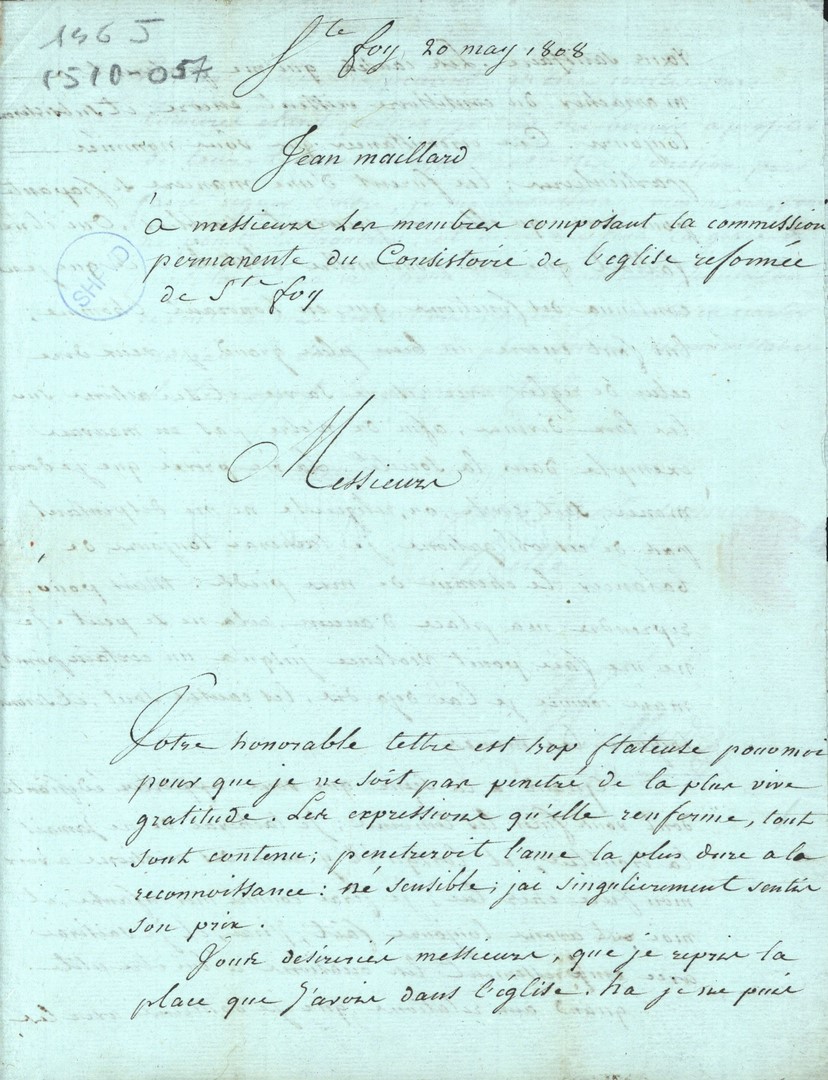 146 J
P510-057
Ste foy 20 may 1808
Jean maillard
à messieurs les membres composant la commission
permanente du Consistoire de l'eglise reformée
de Ste foy
SHPVD
Messieurs
Votre honorable lettre est trop flateuse pour moi
pour que je ne soit pas penetré de la plus vive
gratitude. Les expressions qu'elle renferme, tout
sont contenu; penetreroit l'ame la plus dure a la
reconnoissance: né sensible, jai singulierement sentis
son prix.
Vous desireriés messieurs, que je repris la
place que J'avois dans l'église. ha je ne puis